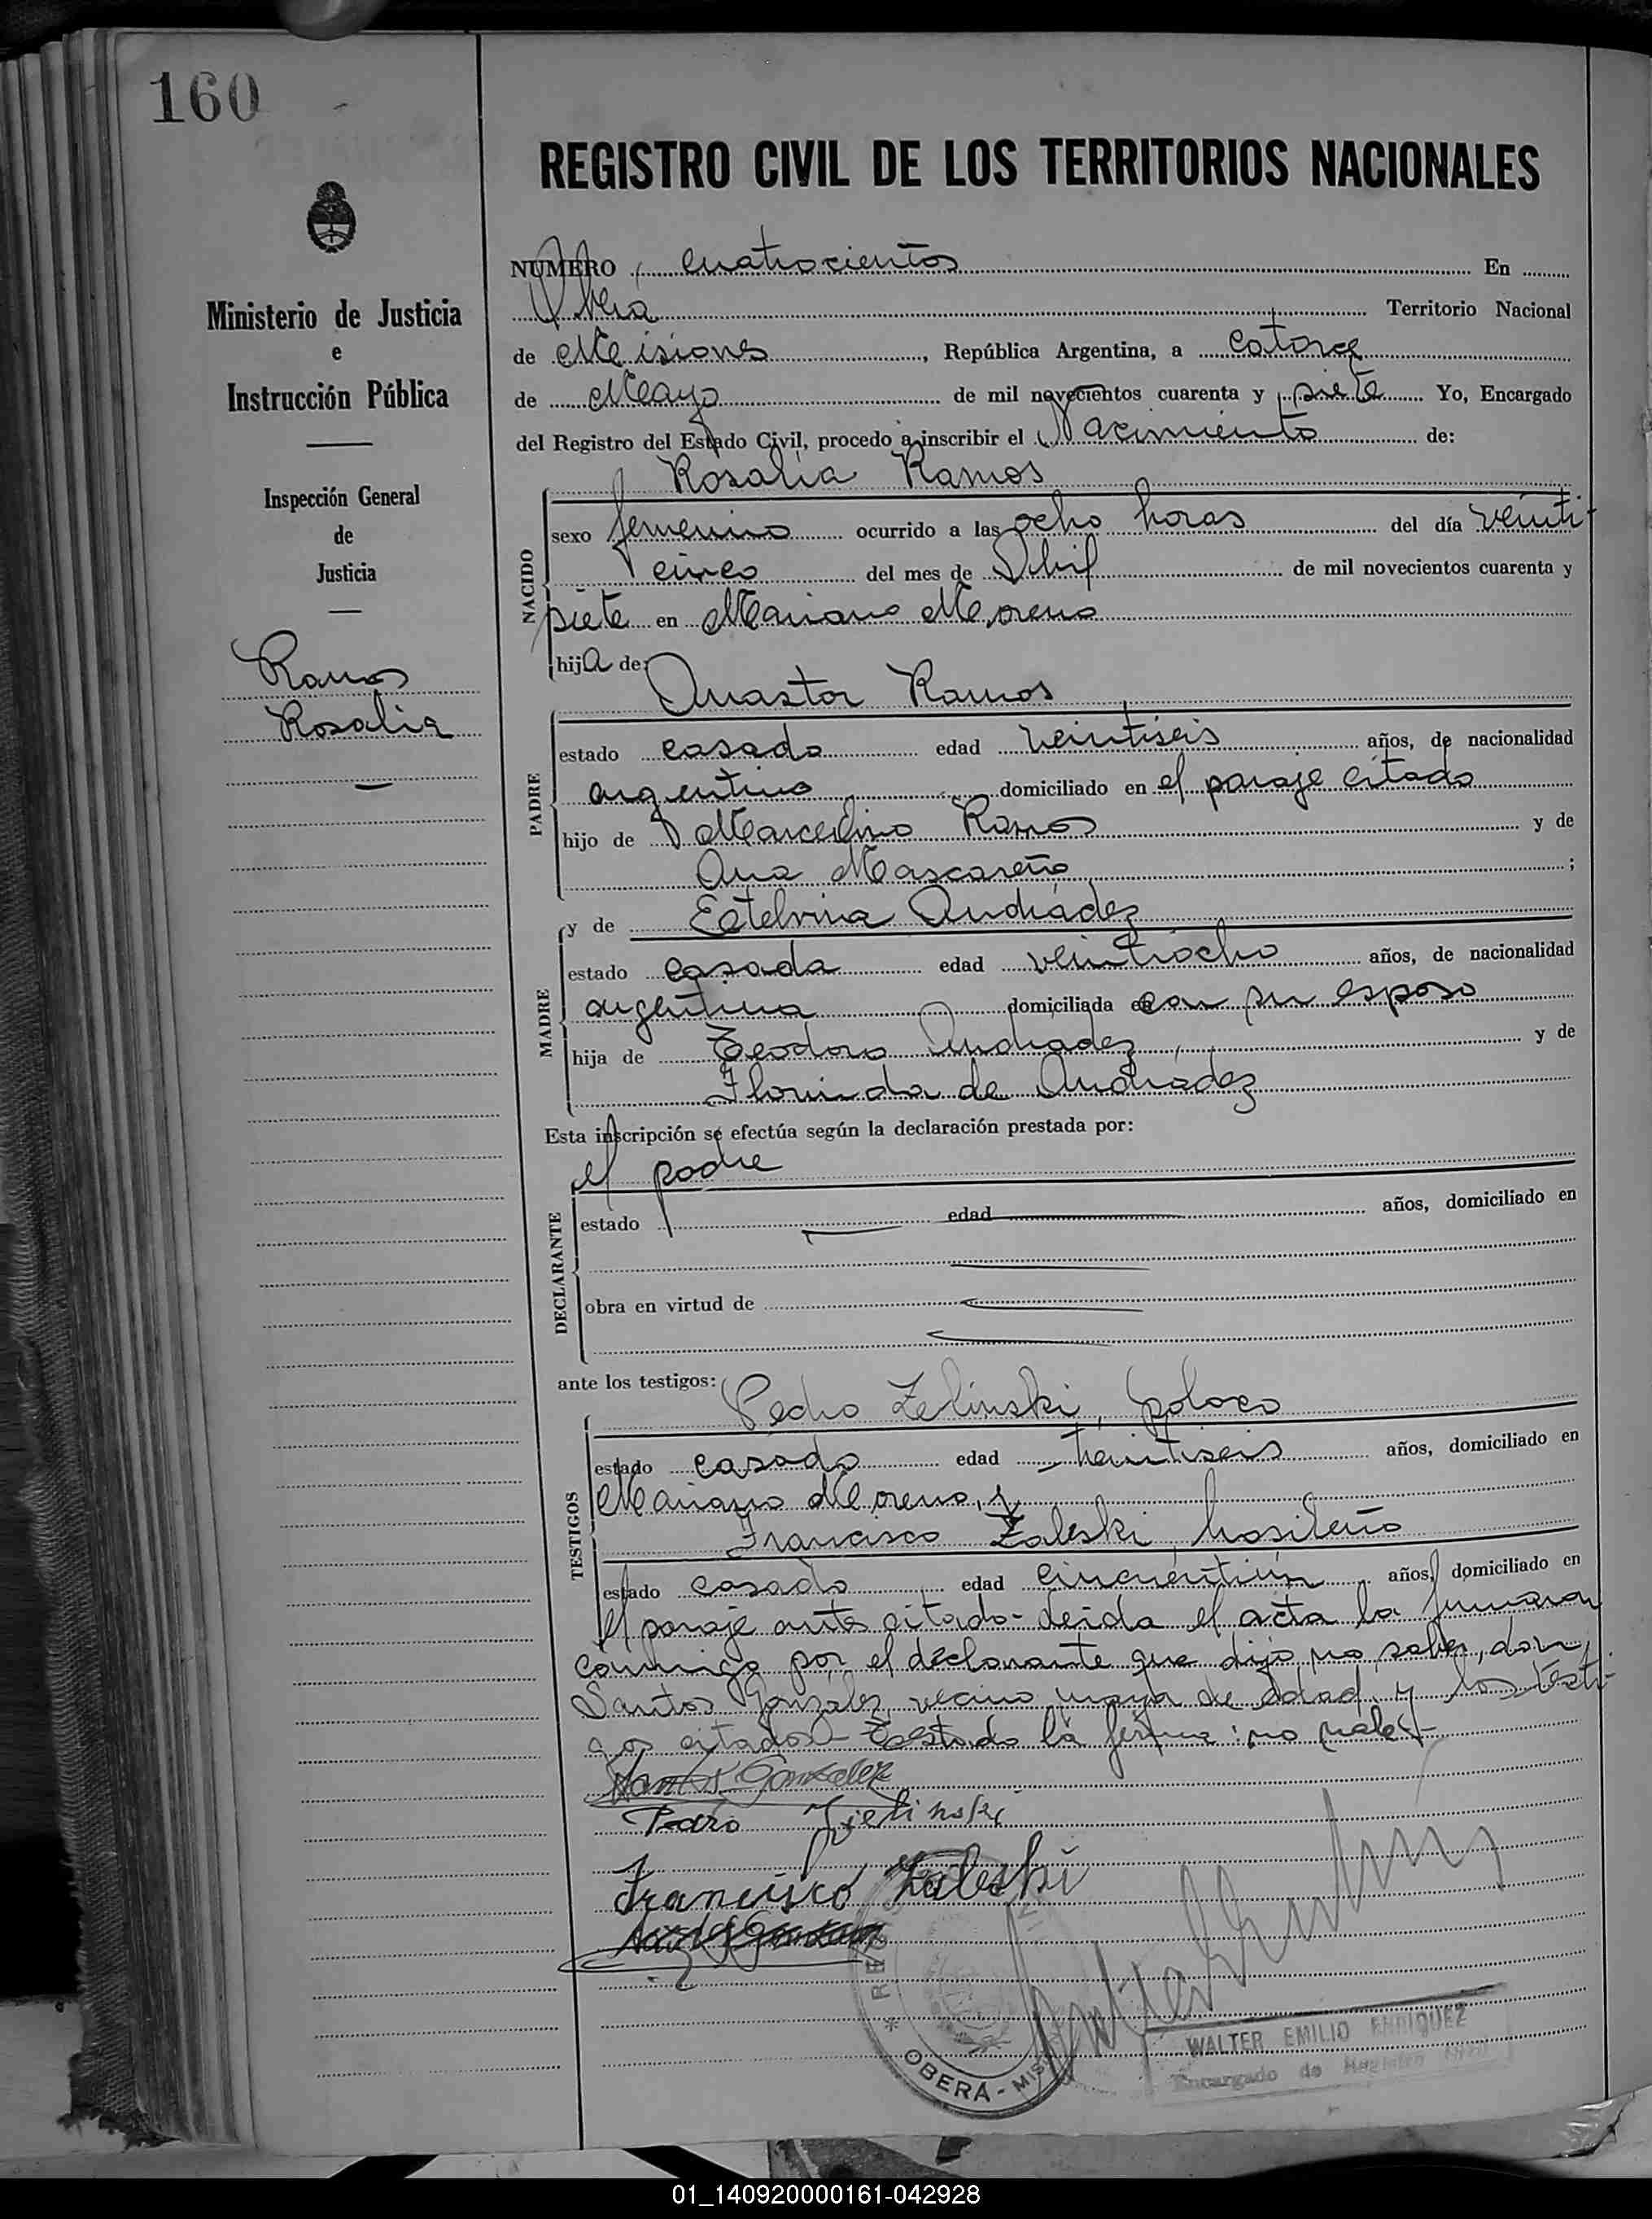 160
REGISTRO CIVIL DE LOS TERRITORIOS NACIONALES
Ministerio de Justicia
e
Instrucción Pública
Inspección General
de
Justicia
Ramos
Rosalia
NUMERO cuatrocientos En
Oberá Territorio Nacional
de Misiones, República Argentina, a catorce
de Mayo de mil novecientos cuarenta y siete Yo, Encargado
del Registro del Estado Civil, procedo a inscribir el Nacimiento de:
NACIDO
Rosalia Ramos
sexo femenino ocurrido a las ocho horas del día veinti-
cinco del mes de Abril de mil novecientos cuarenta y
siete en Mariano Moreno
hija de:
PADRE
Ramos
estado casado edad veintiseis años, de nacionalidad
argentino domiciliado en el paraje citado
hijo de Marcelino Ramos y de
Ana Mascareño;
MADRE
y de Estelvina Andrádez
estado casada edad veintiocho años, de nacionalidad
argentina domiciliada en con su esposo
hija de Teodoro Andradez y de
Florinda de Andradez
Esta inscripción se efectúa según la declaración prestada por:
DECLARANTE
el padre
estado edad años, domiciliado en
obra en virtud de
ante los testigos:
TESTIGOS
Pedro Zelinski, polaco
estado casado edad años, domiciliado en
Mariano Moreno, y
Francisco Zaleski, brasileño
estado casado edad cincuentiún años, domiciliado en
el paraje antes citado- Leida el acta la firmaron
conmigo por el declarante que dijo no saber, don
Santos González, vecino mayor de edad, y los testi-
gos citados- Testado la firma: no vale-
Santos Gonzalez
Pedro Zielinski
Francisco Zaleski
OBERÁ - MIS
WALTER EMILIO ENRIQUEZ
Encargado de Registro
01_140920000161-042928